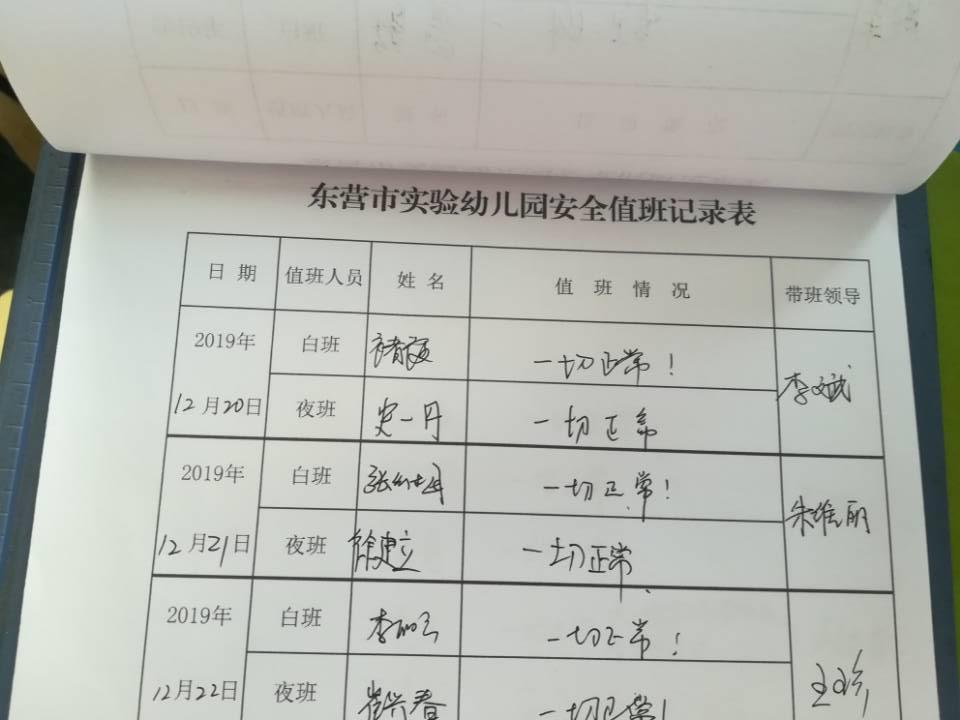 东营市实验幼儿园安全值班记录表
日期 值班人员 姓名 值班情况 带班领导
2019年 白班 一切正常！
12月20日 夜班 史一丹 一切正常 李文斌
2019年 白班 一切正常！
12月21日 夜班 徐建立 一切正常. 朱维丽
2019年 白班 一切正常！
12月22日 夜班 崔兴春 一切正常！ 王珍